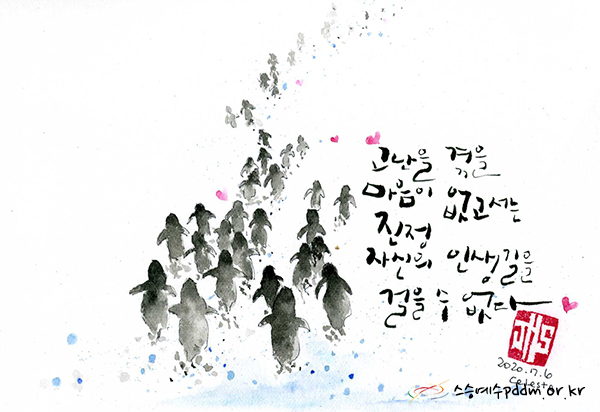 고난을 겪을
마음이 없고서는
진정
자신의 인생길을
걸을 수 없다
JHS
2020.7.6
Celeste
스승예수pddm.or.kr